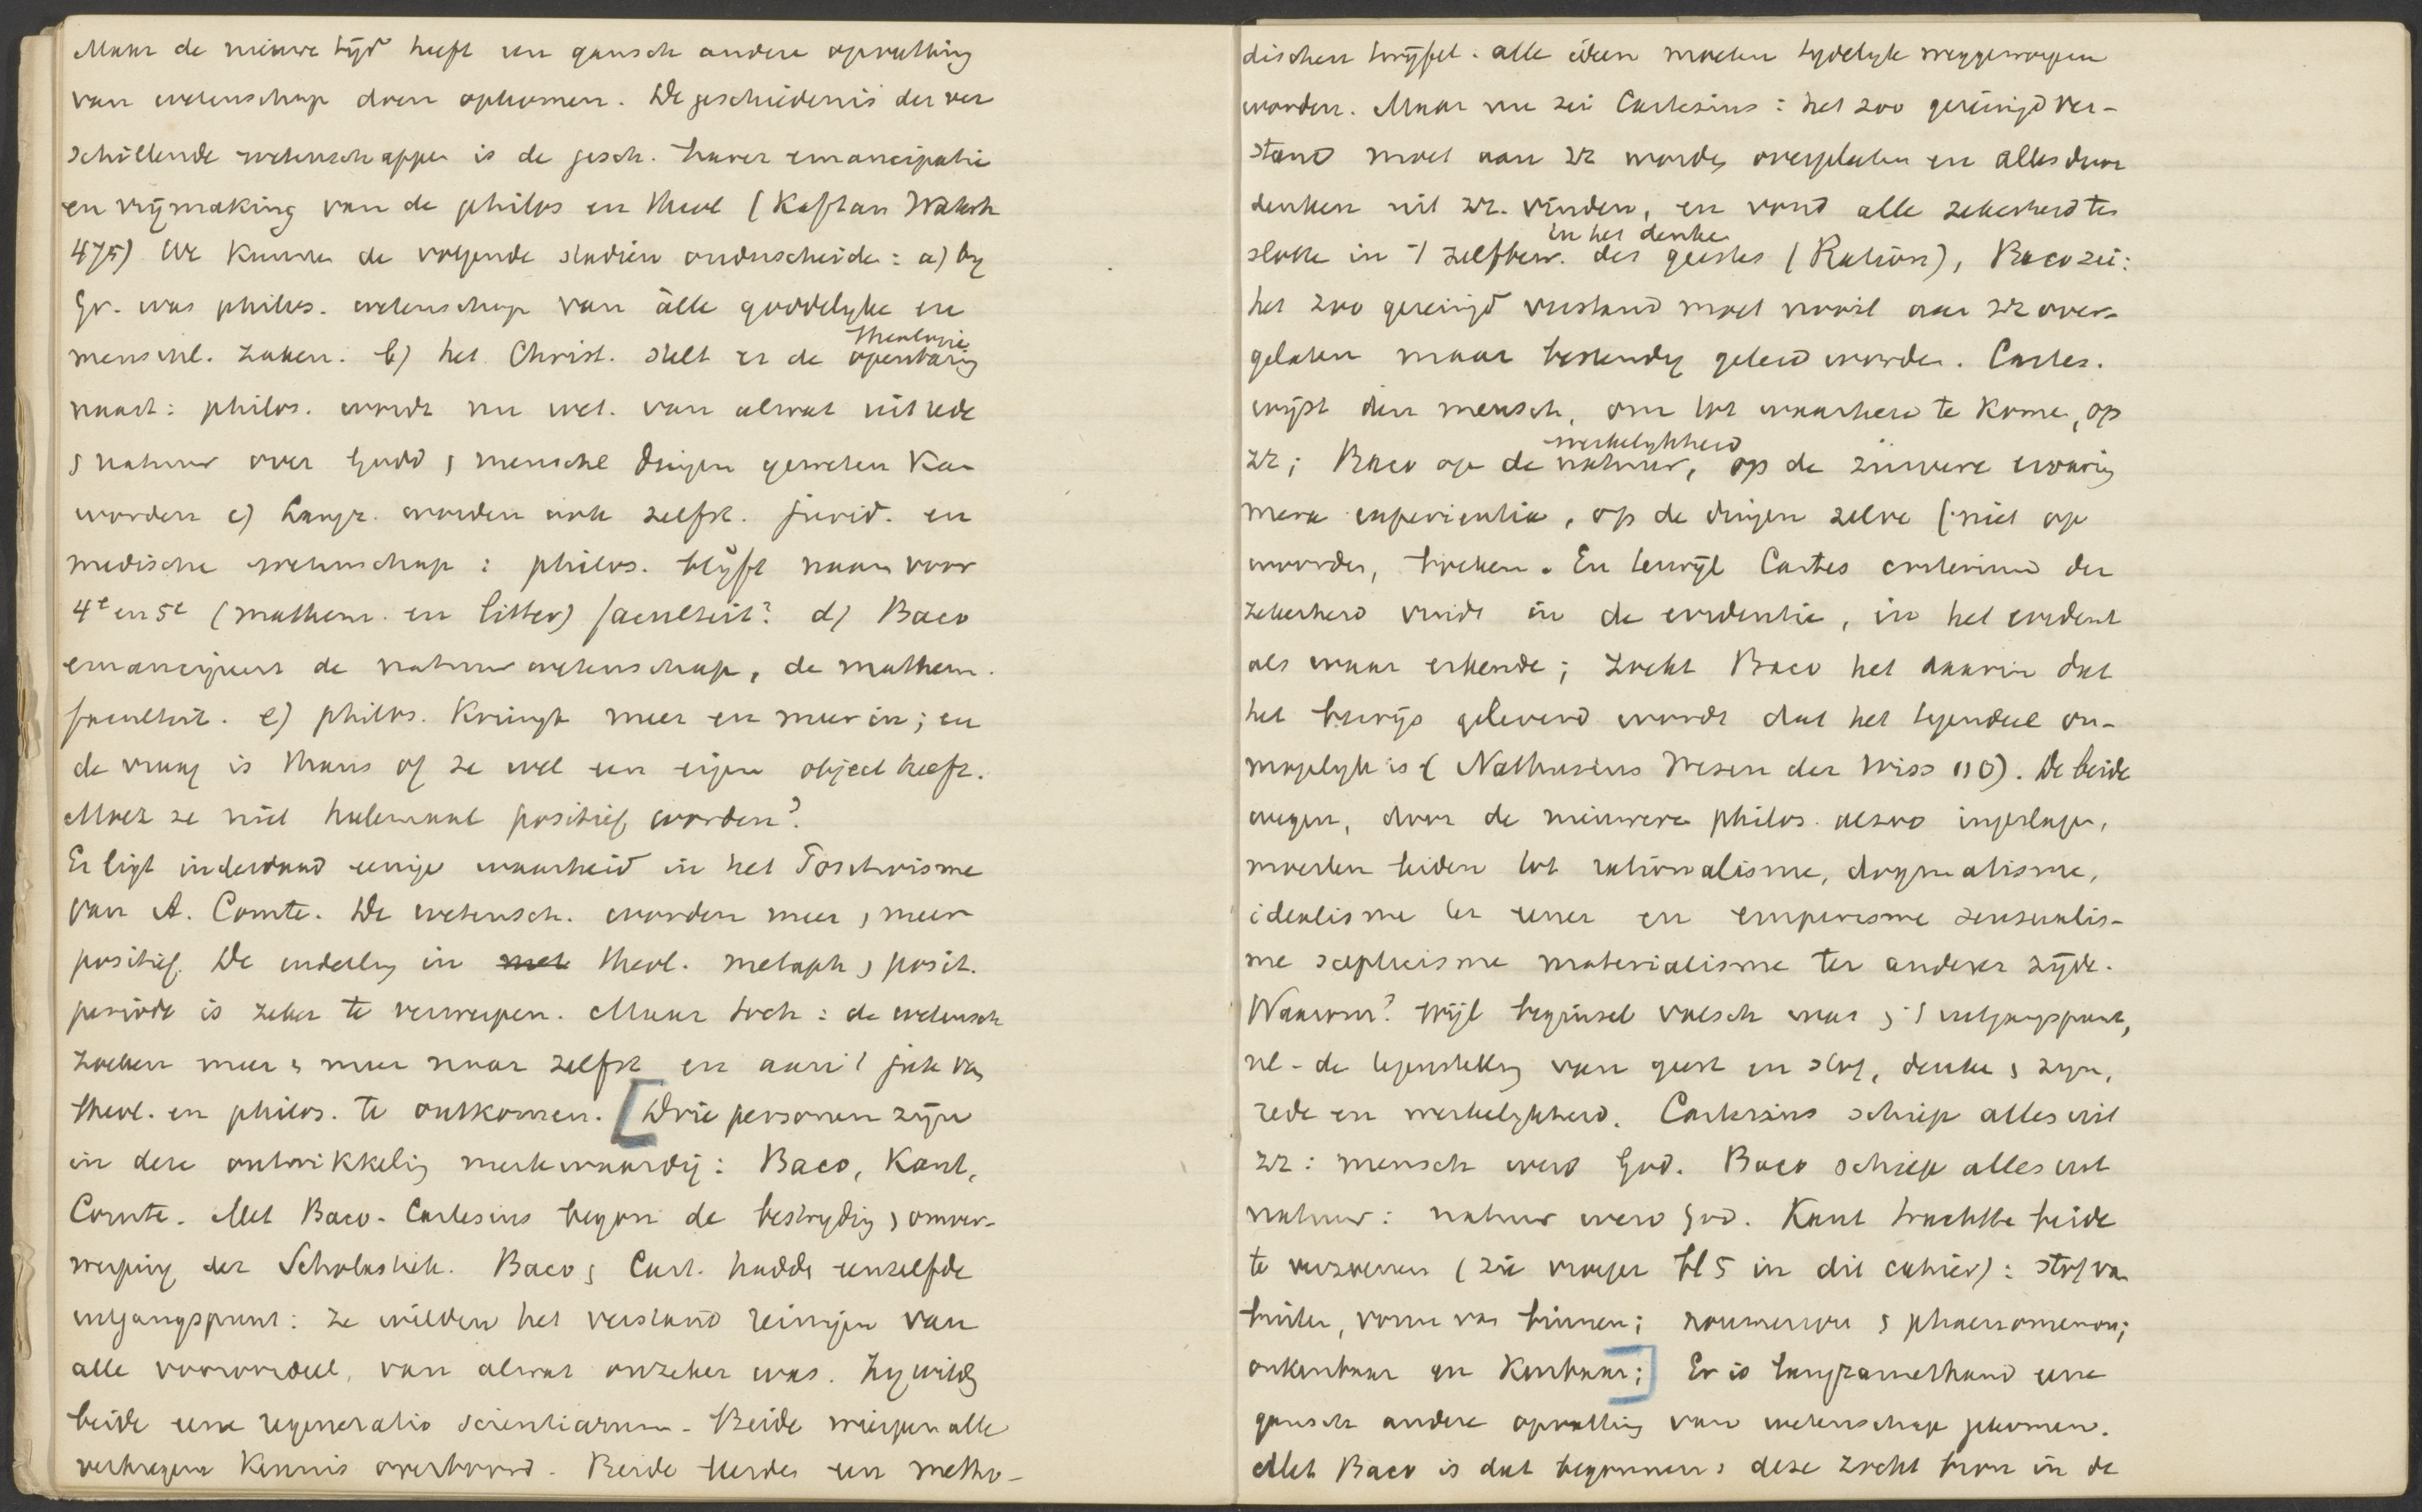 Maar de nieuwe tijd heeft een gansch andere opvatting
van wetenschap doen opkomen. De geschiedenis der ver
schillende wetenschappen is de gesch. harer emancipatie
en vrijmaking van de philos en theol (Kaftan Wahrh
475) We kunnen de volgende stadien onderscheiden: a) by
Gr. was philos. wetenschap van alle goddelyke en
theologie
menschl. zaken. b) het Christ. stelt er de openbaring
naast: philos. wordt nu wet. van alwat uit rede
en natuur over godd en menschl dingen geweten kan
worden c) Langz. worden ook zelfst. jurid. en
medische wetenschap: philos. blijft naam voor
4e en 5e (mathem. en litter) faculteit? d) Baco
emancipeert de natuurwetenschap, de mathem.
faculteit. e) philos. kringt meer en meer in; en
de vraag is thans of ze wel een eigen object heeft.
Moet ze niet helemaal positief worden?
Er ligt inderdaad eenige waarheid in het Positivisme
van A. Comte. De wetensch. worden meer en meer
positief. De indeeling in met theol. metaph en posit.
periode is zeker te verwerpen. Maar toch: de wetensch
zoeken meer en meer naar zelfst en aan 't juk van
theol. en philos. te ontkomen. [Drie personen zijn
in deze ontwikkeling merkwaardig: Baco, Kant,
Comte. Met Baco-Cartesius begon de bestryding en omver-
werping der Scholastiek. Baco en Cart. hadden eenzelfde
uitgangspunt: ze wilden het verstand reinigen van
alle vooroordeel, van alwat onzeker was. Zy wilden
beide eene regeneratio scientiarum. Beide wierpen alle
verkregene kennis overboord. Beide leerden een metho-
dischen twijfel. alle ideen moeten tydelyk weggeworpen
worden. Maar nu zei Cartesius: het zoo gereinigd ver-
stand moet aan zz worden overgelaten en alles door
denken uit zz. vinden, en vond alle zekerheid ten
in het denken
slotte in 't zelfbew. des geestes (Ration), Baco zei:
het zoo gereinigd verstand moet nooit aan zz over-
gelaten maar bestendig geleid worden. Cartes.
wijst den mensch, om tot waarheid te komen, op
werkelykheid
zz; Baco op de natuur, op de zuivere ervaring
mera experientia, op de dingen zelve (niet op
woorden, boeken. En terwijl Cartes criterium der
zekerheid vindt in de evidentie, in het evident
als waar erkende; zoekt Baco het daarin dat
het bewijs geleverd wordt dat het tegendeel on-
mogelyk is (Nathusius Wesen der Wiss 110). De beide
wegen, door de nieuwere philos. alzoo ingeslagen,
moesten leiden tot rationalisme, dogmatisme,
idealisme ter eener en empirisme sensualis-
me scepticisme materialisme ter anderer zijde.
Waarom? wijl beginsel valsch was en 't uitgangspunt,
nl. de tegenstelling van geest en stof, denken en zyn,
rede en werkelykheid. Cartesius schiep alles uit
zz: mensch werd God. Baco schiep alles uit
natuur: natuur werd God. Kant trachtte beide
te verzoenen (zie vroeger bl 5 in dit cahier): stof van
buiten, vorm van binnen; noumenon en phaenomenon;
onkenbaar en kenbaar;] Er is langzamerhand eene
gansch andere opvatting van wetenschap gekomen.
Met Baco is dat begonnen; deze zocht bron in de